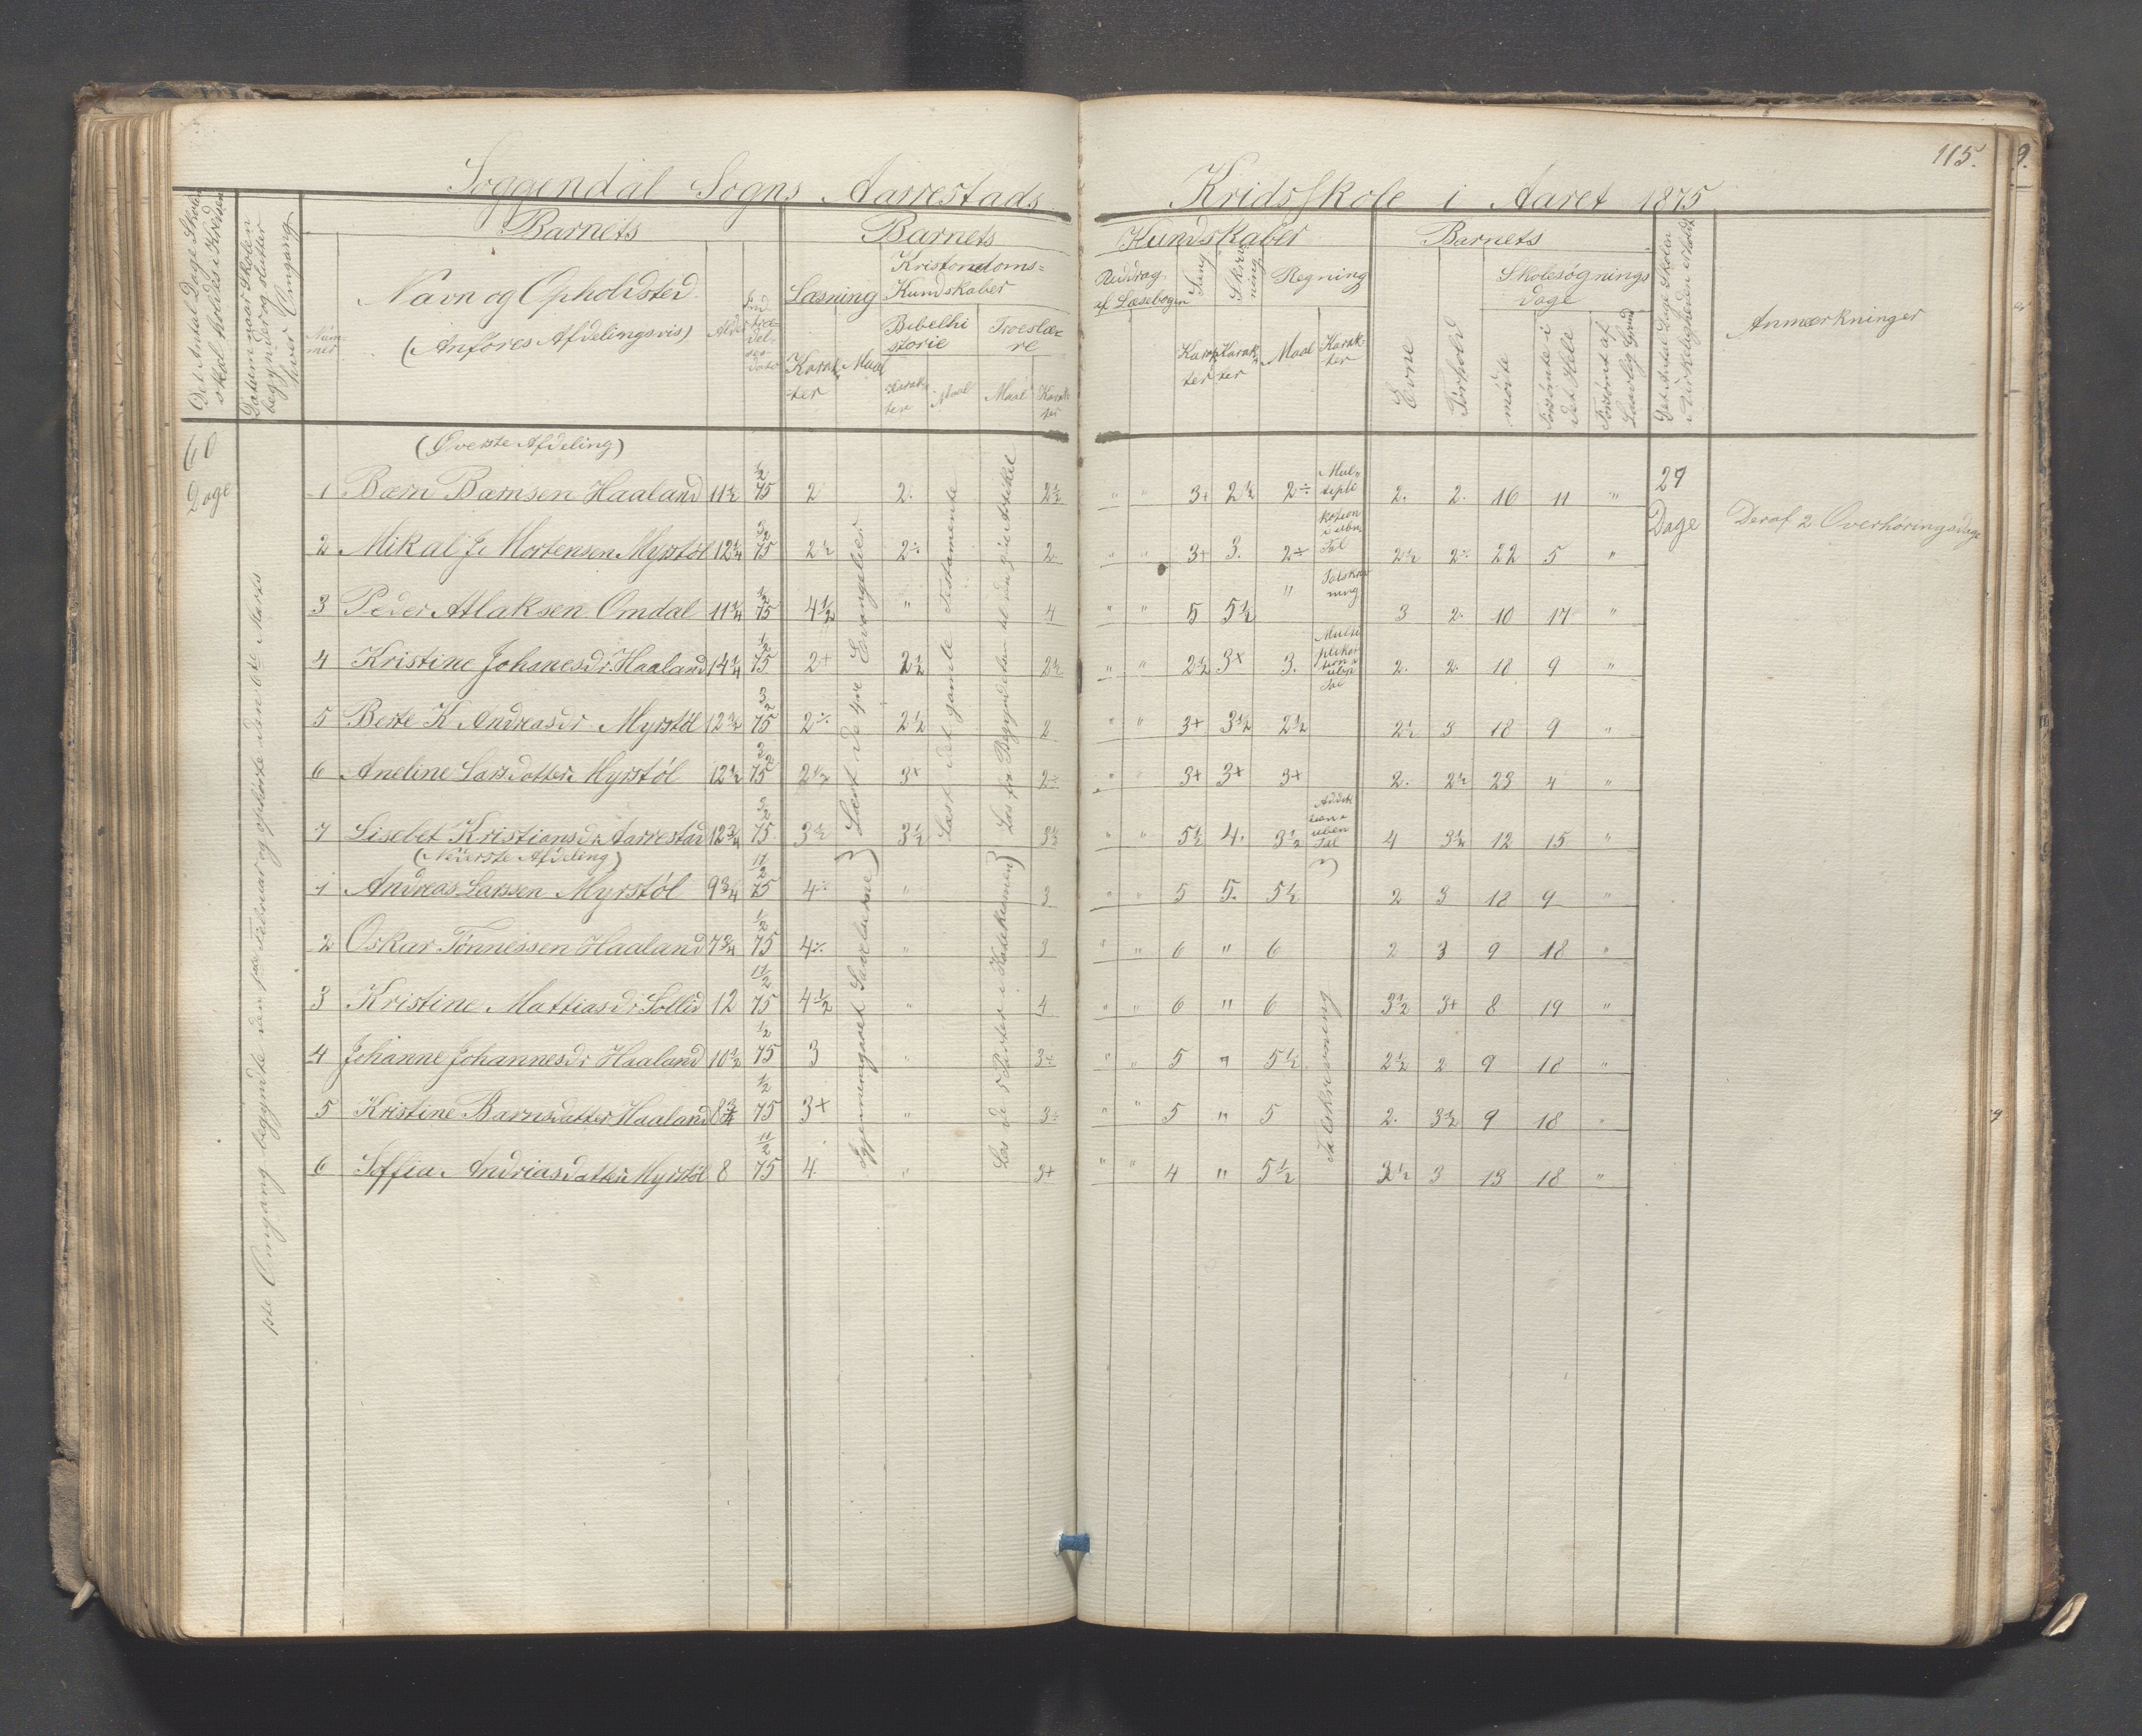 115.
Soggendal Sogns Aarrestads Kridsskole i Aaret 1875
Det Antal Dage Skolen skal holdes i Kredsen
Datum naar Skolen begynder og slutter hver Omgang
Barnets
Num-
mer
Navn og Opholdsted
(Anføres Afdelingsvis)
Alder
Ind
træ-
del-
ses-
dato
Barnets
Læsning
Karak-
ter
Maal
Kristendoms-
Kundskaber
Bibelhi
storie
Karak-
ter
Maal
Troeslæ-
re
Maal
Karak-
ter
Kundskaber
Uddrag
af Læsebogen
Sang
Karak-
ter
Skriv
ning
Karak-
ter
Regning
Maal
Karak-
ter
Barnets
Evne
Forhold
Skolesøgnings
dage
mødte
Forsømte i det Hele
Forsømt af Lovlig Grund
Det Antal Dage Skolen i Virkeligheden er holdt
Anmærkninger
60
Dage
(Øverste Afdeling)
1 Bærn Bærnsen Haaland 11½ ½ 75 2 2. 2½ " " 3+ 2½ 2÷ 2. 2. 16 11 "
2 Mikal J. Mortensen Myrstøl 12¼ 3/2 75 2½ 2÷ 2 " " 3+ 3. 2÷ 2½ 2÷ 22 5 "
3 Peder Atlaksen Omdal 11¼ ½ 75 4½ " 4 " " 5 5½ " 3 2. 10 17 "
4 Kristine Johanesdr. Haaland 14¼ ½ 75 2+ 2½ 2½ " " 2½ 3+ 3. 2. 2. 18 9 "
5 Berte K Andreasdr Myrstøl 12¾ 3/2 75 2÷ 2½ 2 " " 3+ 3½ 2½ 2½ 3 18 9 "
6 Aneline Larsdatter Myrstøl 12½ 3/2 75 2½ 3+ 2÷ " " 3+ 3+ 3+ 2. 2½ 23 4 "
7 Lisebet Kristiansdr Aarrestad 12¾ 3/2 75 3½ 3½ 3½ " " 5½ 4. 3½ 4 3½ 12 15 "
(Nederste Afdeling)
1 Andreas Larssen Myrstøl 9¾ 11/2 75 4÷ " 3 " " 5 5. 5½ 2 3 18 9 "
2 Oskar Tønnessen Haaland 7¾ ½ 75 4÷ " 3 " " 6 " 6 2 3 9 18 "
3 Kristine Mattiasdr Sollid 12 11/2 75 4½ " 4 " " 6 " 6 3½ 3+ 8 19 "
4 Johanne Johannesdr Haaland 10½ ½ 75 3 " 3÷ " " 5 " 5½ 2½ 2 9 18 "
5 Kristine Barnsdatter Haaland 8¾ ½ 75 3+ " 3÷ " " 5 " 5 2. 3½ 9 18 "
6 Soffia Andriasdatter Myrstøl 8 11/2 75 4 " 3+ " " 4 " 5½ 3½ 3 13 18 "
1ste Omgang begyndte den 1ste Februar og ophørte den 6de Marts
Læst de fire Evangelier
Gjennemgaaet
Læst det gamle Testamente
Læs fra Begyndelsen til den 3die Artikel
Læs de 5 Parter i Katekismen
Mul-
tipli
kation
i uben
Tal
Talskriv
ning
Multi
plika-
tion i
uben
Tal
Addik
tion i
uben
Tal
Talskrivning
27
Dage
Deraf 2 Overhøringsdage